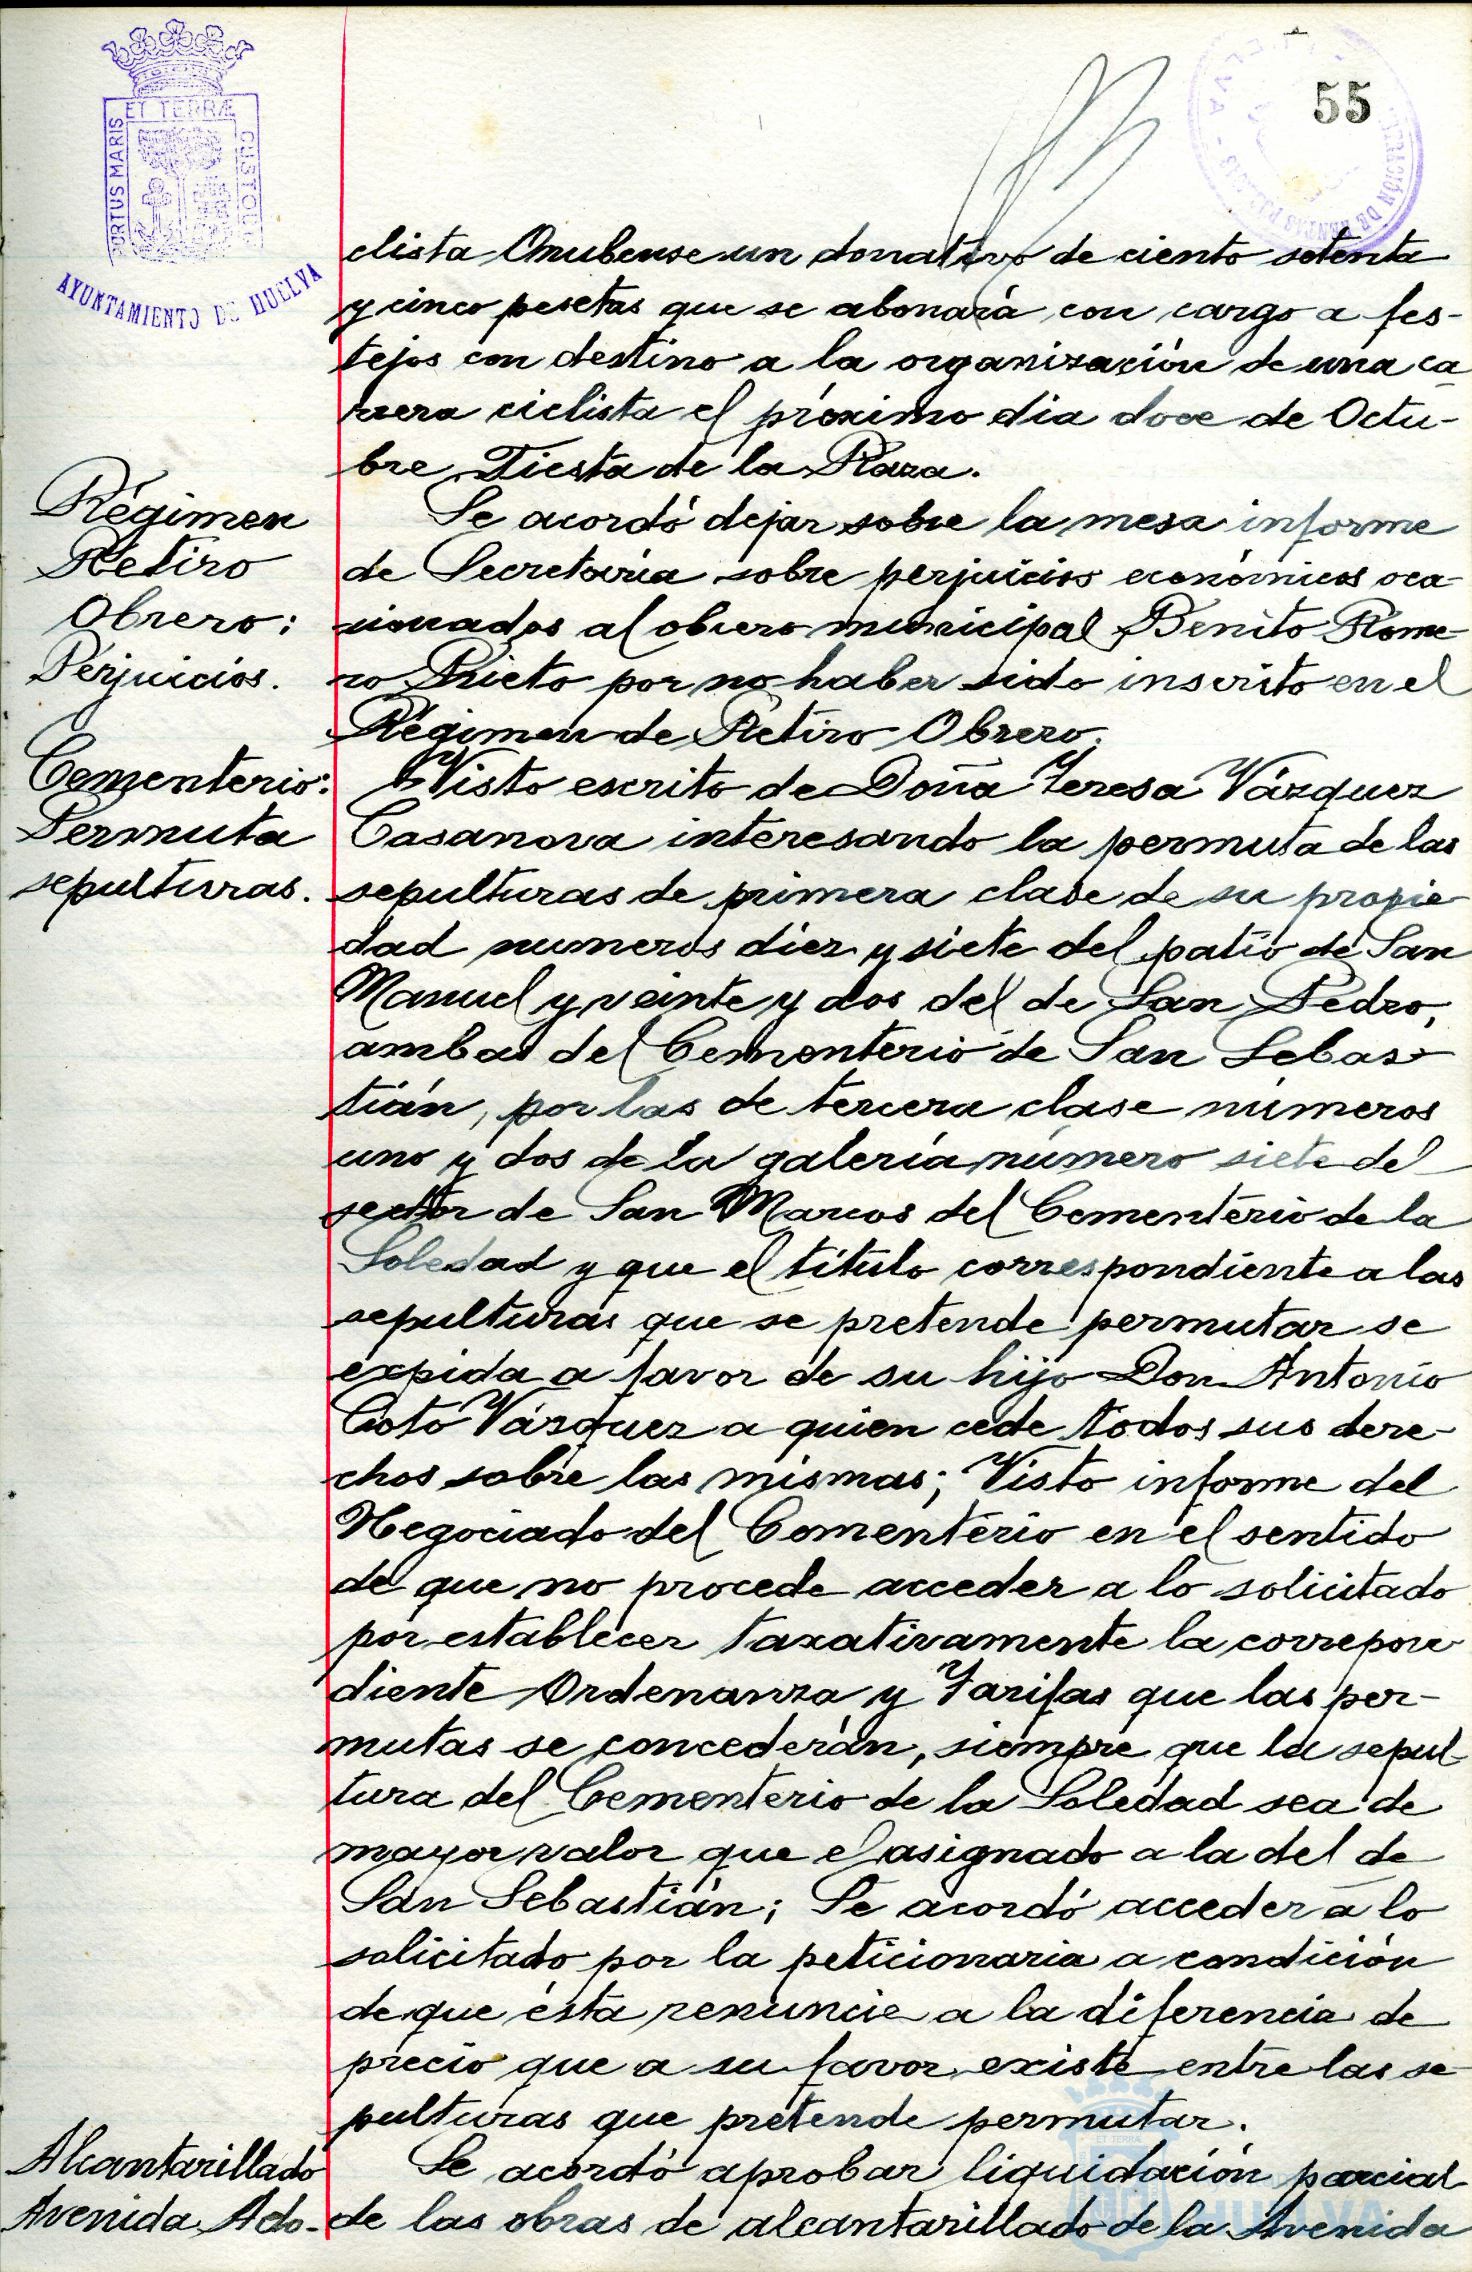 55
ET TERRÆ
PORTUS MARIS
CUSTODIA
AYUNTAMIENTO DE HUELVA
clista Onubense un donativo de ciento setenta
y cinco pesetas que se abonará con cargo a fes-
tejos con destino a la organización de una ca
rrera ciclista el próximo dia doce de Octu-
bre, Fiesta de la Raza.
Régimen
Retiro
Obrero:
Perjuicios.
Se acordó dejar sobre la mesa informe
de Secretaría sobre perjuicios económicos oca-
sionados al obrero municipal Benito Rome-
ro Prieto por no haber sido inscrito en el
Régimen de Retiro Obrero.
Cementerio:
Permuta
sepulturas.
Visto escrito de Doña Teresa Vázquez
Casanova interesando la permuta de las
sepulturas de primera clase de su propie-
dad numeros diez y siete del patio de San
Manuel y veinte y dos del de San Pedro,
ambas del Cementerio de San Sebas-
tián, por las de tercera clase números
uno y dos de la galería número siete del
sector de San Marcos del Cementerio de la
Soledad y que el título correspondiente a las
sepulturas que se pretende permutar se
expida a favor de su hijo Don Antonio
Coto Vázquez a quien cede todos sus dere-
chos sobre las mismas; Visto informe del
Negociado del Cementerio en el sentido
de que no procede acceder a lo solicitado
por establecer taxativamente la correpon-
diente Ordenanza y Tarifas que las per-
mutas se concederán, siempre que la sepul-
tura del Cementerio de la Soledad sea de
mayor valor que el asignado a la del de
San Sebastián; Se acordó acceder a lo
solicitado por la peticionaria a condición
de que ésta renuncie a la diferencia de
precio que a su favor existe entre las se-
pulturas que pretende permutar.
Alcantarillado
Avenida Ado-
Se acordó aprobar liquidación parcial
de las obras de alcantarillado de la Avenida
HUELVA